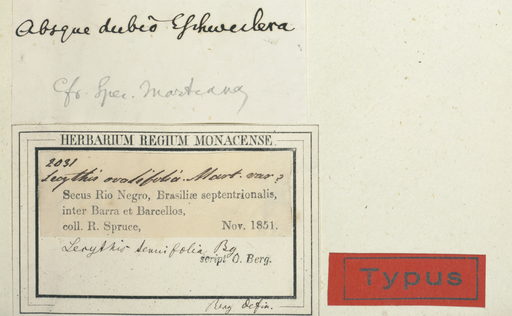 Absque dubio Eschweilera
Cfr. Spec. Martiana
HERBARIUM REGIUM MONACENSE.
2031
Lecythis ovalifolia. Mart. var?
Secus Rio Negro, Brasiliæ septentrionalis,
inter Barra et Barcellos,
coll. R. Spruce, Nov. 1851.
Lecythis tenuifolia Bg
script O. Berg.
Berg defin.
Typus